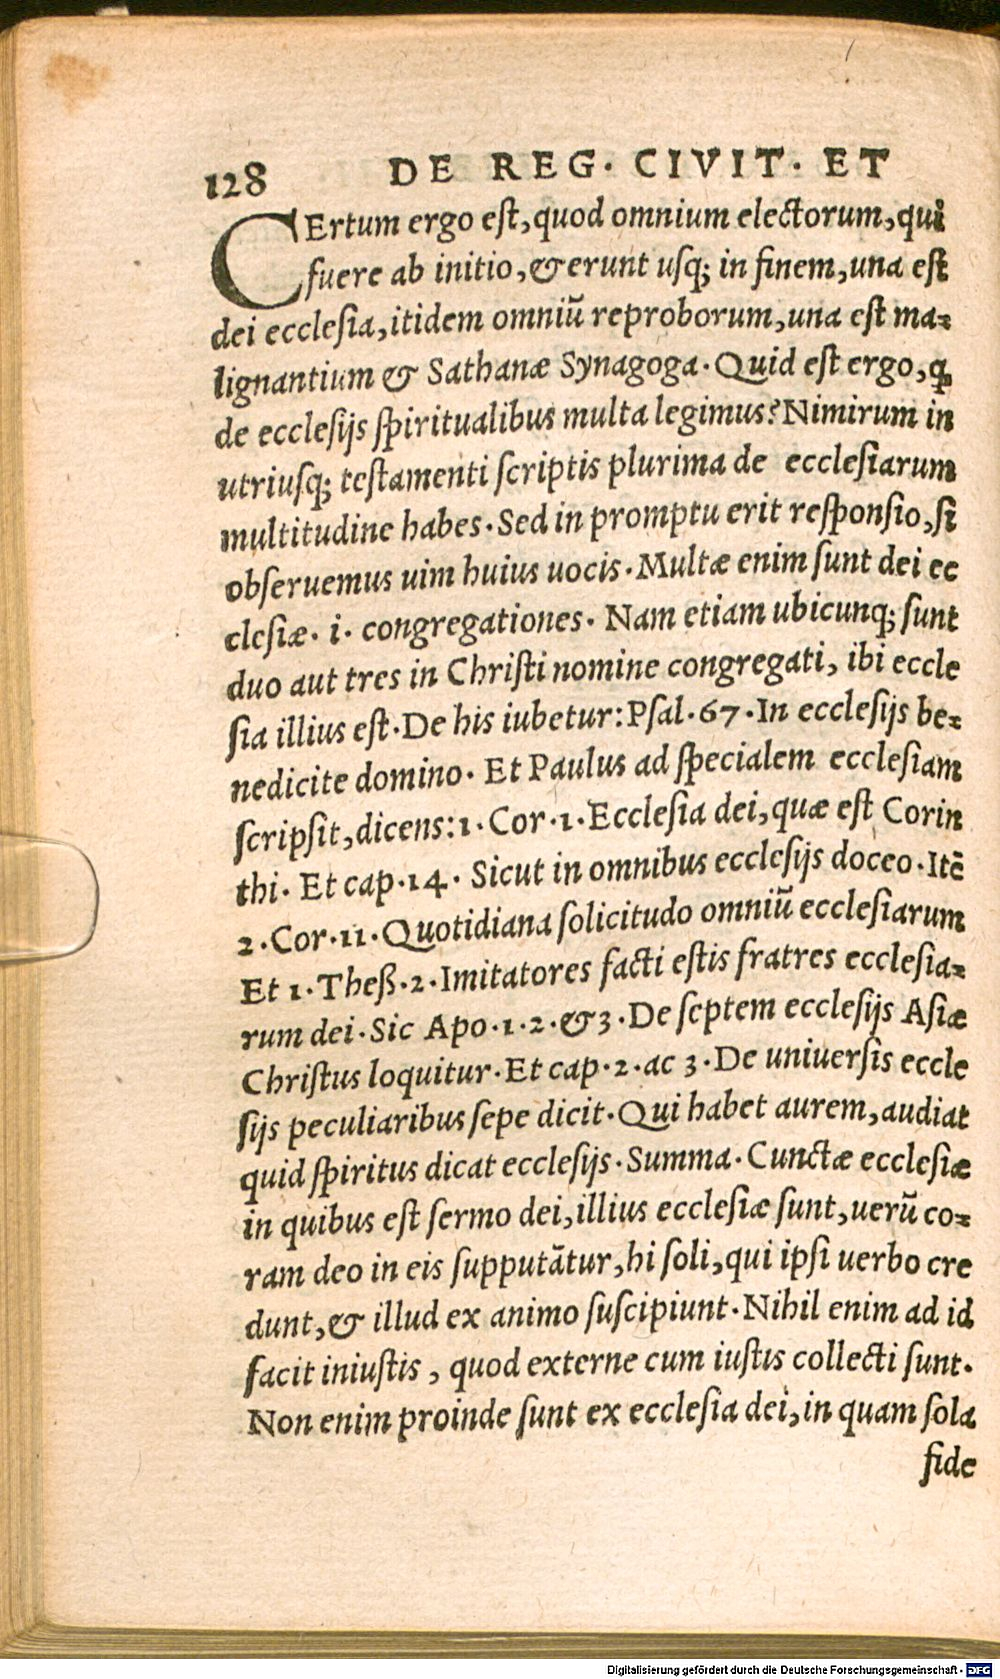 128 DE REG. CIVIT. ET
CErtum ergo eſt, quod omnium electorum, qui
fuere ab initio, & erunt uſq; in finem, una eſt
dei eccleſia, itidem omniũ reproborum, una eſt ma-
lignantium & Sathanæ Synagoga. Quid eſt ergo, ꝙ
de eccleſijs ſpiritualibus multa legimus? Nimirum in
utriuſq; teſtamenti ſcriptis plurima de eccleſiarum
multitudine habes. Sed in promptu erit reſponſio, ſi
obſeruemus uim huius uocis. Multæ enim ſunt dei ec
cleſiæ. i. congregationes. Nam etiam ubicunq; ſunt
duo aut tres in Chriſti nomine congregati, ibi eccle
ſia illius eſt. De his iubetur: Pſal. 67. In eccleſijs be-
nedicite domino. Et Paulus ad ſpecialem eccleſiam
ſcripſit, dicens: 1. Cor. 1. Eccleſia dei, quæ eſt Corin
thi. Et cap. 14. Sicut in omnibus eccleſijs doceo. Itẽ
2. Cor. 11. Quotidiana ſolicitudo omniũ eccleſiarum
Et 1. Theß. 2. Imitatores facti eſtis fratres eccleſia-
rum dei. Sic Apo. 1. 2. & 3. De ſeptem eccleſijs Aſiæ
Chriſtus loquitur. Et cap. 2. ac 3. De uniuerſis eccle
ſijs peculiaribus ſepe dicit. Qui habet aurem, audiat
quid ſpiritus dicat eccleſijs. Summa. Cunctæ eccleſiæ
in quibus eſt ſermo dei, illius eccleſiæ ſunt, uerũ co-
ram deo in eis ſupputãtur, hi ſoli, qui ipſi uerbo cre
dunt, & illud ex animo ſuſcipiunt. Nihil enim ad id
facit iniuſtis, quod externe cum iuſtis collecti ſunt.
Non enim proinde ſunt ex eccleſia dei, in quam ſola
fide
Digitalisierung gefördert durch die Deutsche Forschungsgemeinschaft - DFG